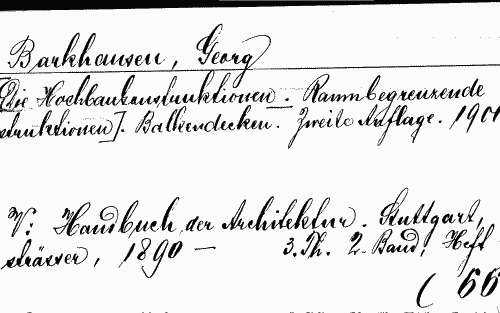 Barkhausen, Georg
[Die Hochbaukonstruktionen. Raumbegrenzende
struktionen]. Balkendecken. Zweite Auflage. 190
V: Handbuch der Architektur. Stuttgart,
strässer, 1890 — 3. Th. 2. Band, Heft
( 66